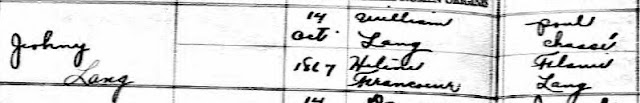 14 William Paul
Johny Oct. Lang Chassé
Lang 1867 Héléne
Francoeur Lang
14